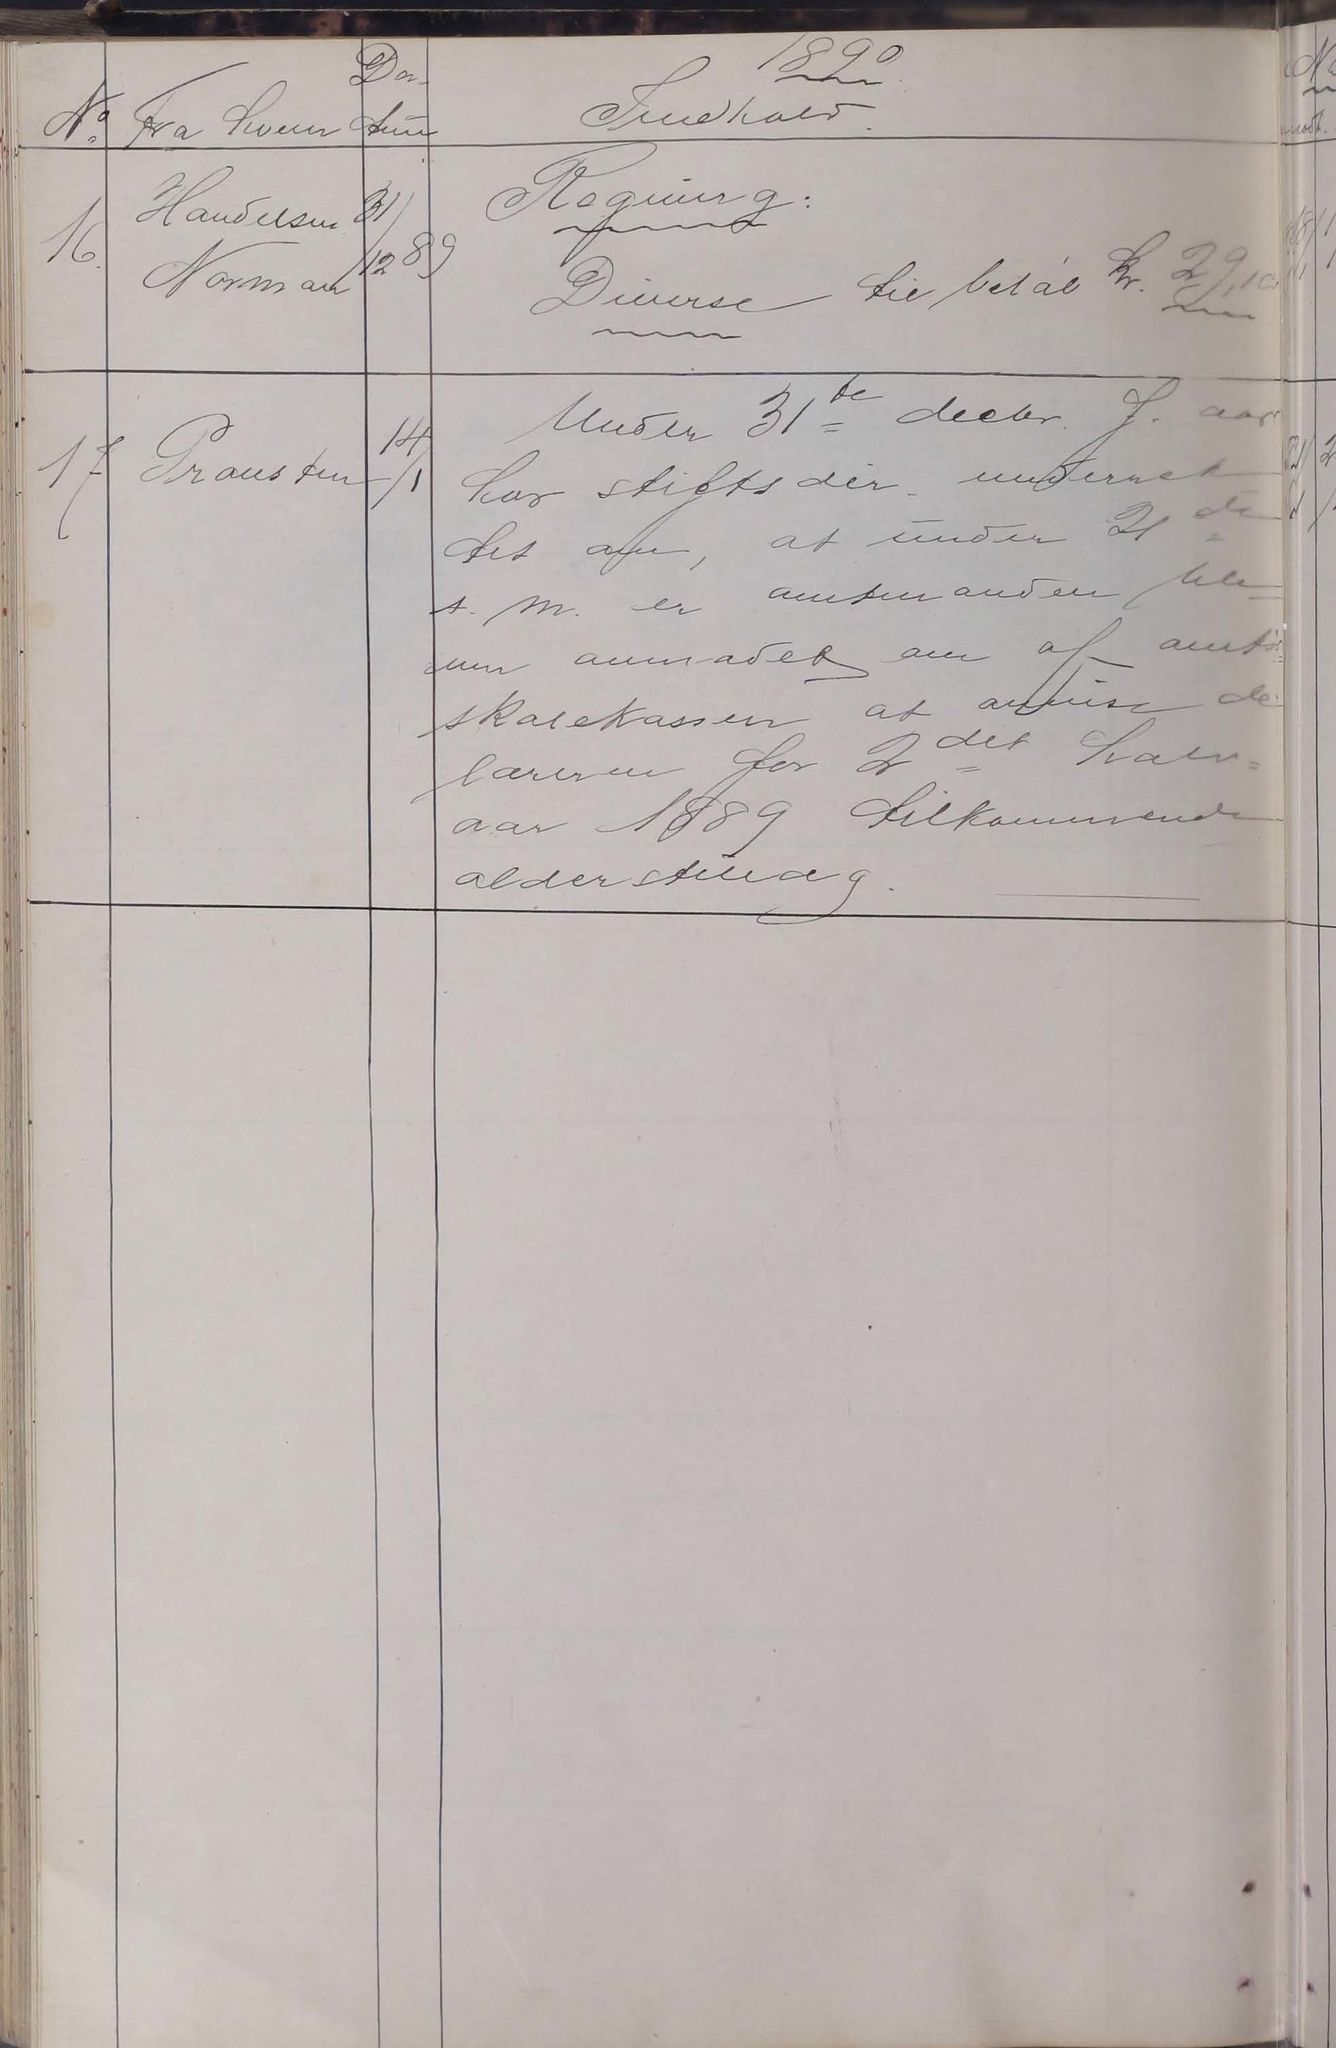 1890
No. Fra hvem Da-
tum Indhold.
16. Handelsm. Norman 31/12 89 Regning:
Diverse til beløb kr. 29,10
17 Provsten 14/1 Under 31te decbr. f. aar
har stiftsdir. underret-
tet om, at under 21de
s. m. er amtmanden ble-
ven anmodet om af amts-
skolekassen at anvise de
lærerne for 2det halv-
aar 1889 tilkommende
alderstillæg.